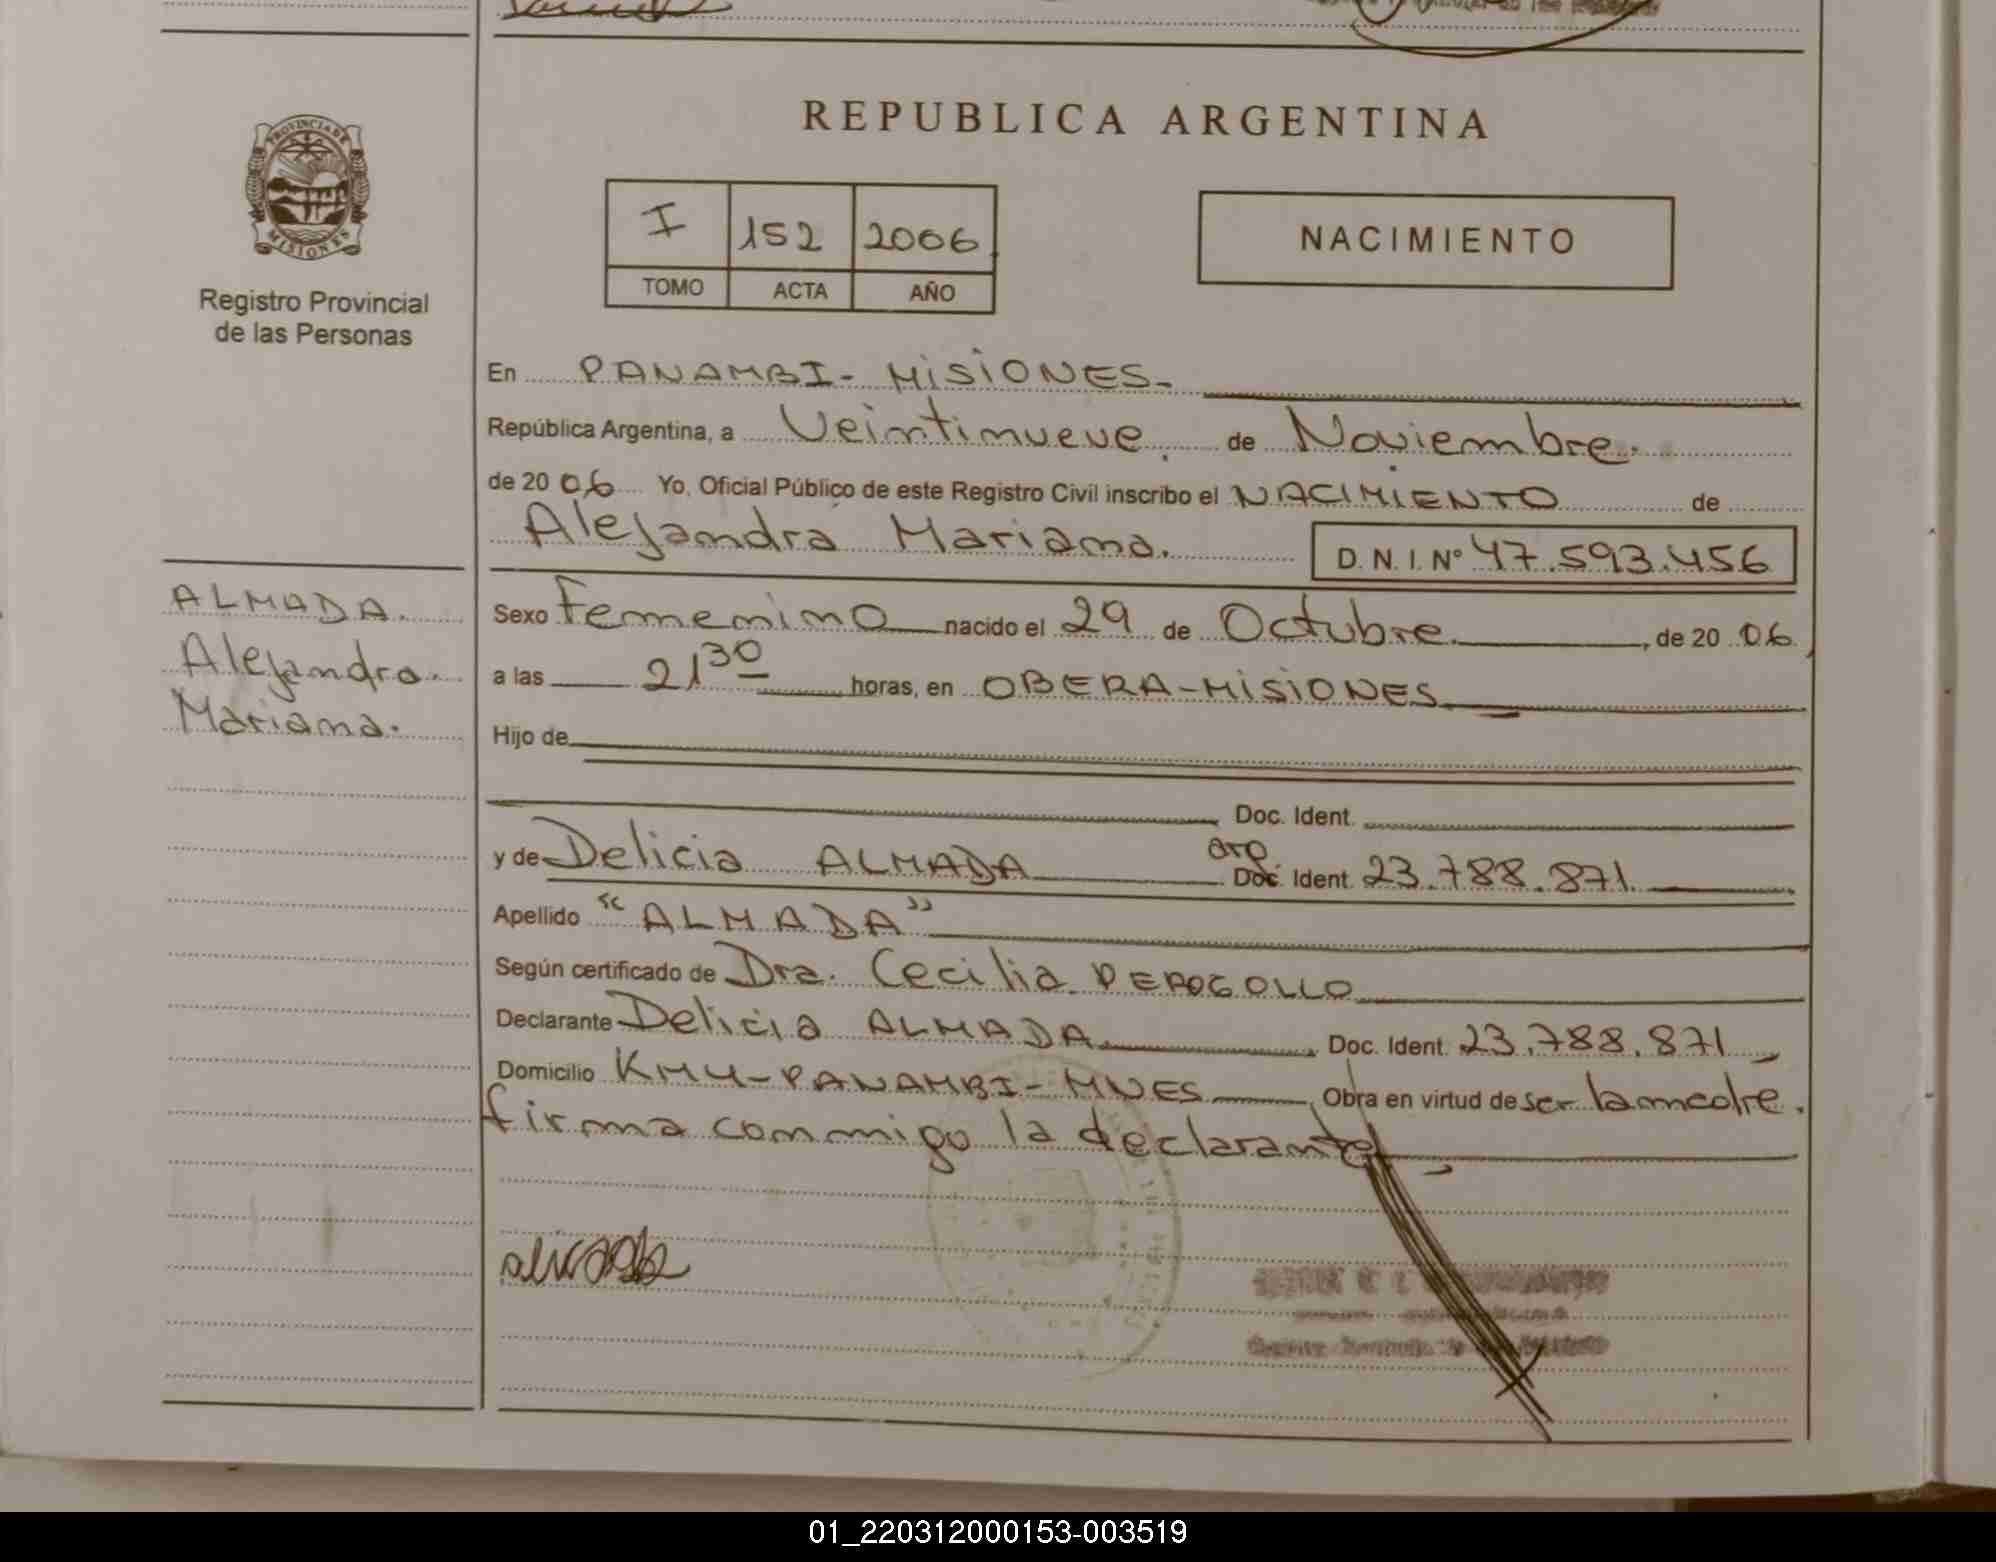 REPUBLICA ARGENTINA
PROVINCIA DE
MISIONES
Registro Provincial
de las Personas
I 152 2006
TOMO ACTA AÑO
NACIMIENTO
En PANAMBI - MISIONES -
República Argentina, a Veintinueve de Noviembre
de 20 06 Yo, Oficial Público de este Registro Civil inscribo el NACIMIENTO de
Alejandra Mariana. D. N. I. Nº 47.593.456
ALMADA.
Alejandra.
Mariana.
Sexo Femenino nacido el 29 de Octubre , de 20 06
a las 21 30 horas, en OBERA - MISIONES
Hijo de
Doc. Ident.
y de Delicia ALMADA arg. Doc. Ident. 23.788.871
Apellido "ALMADA"
Según certificado de Dra. Cecilia
Declarante Delicia ALMADA Doc. Ident. 23.788.871
Domicilio KM4 - PANAMBI - MNES Obra en virtud de ser la madre.
firma conmigo la declarante
01_220312000153-003519